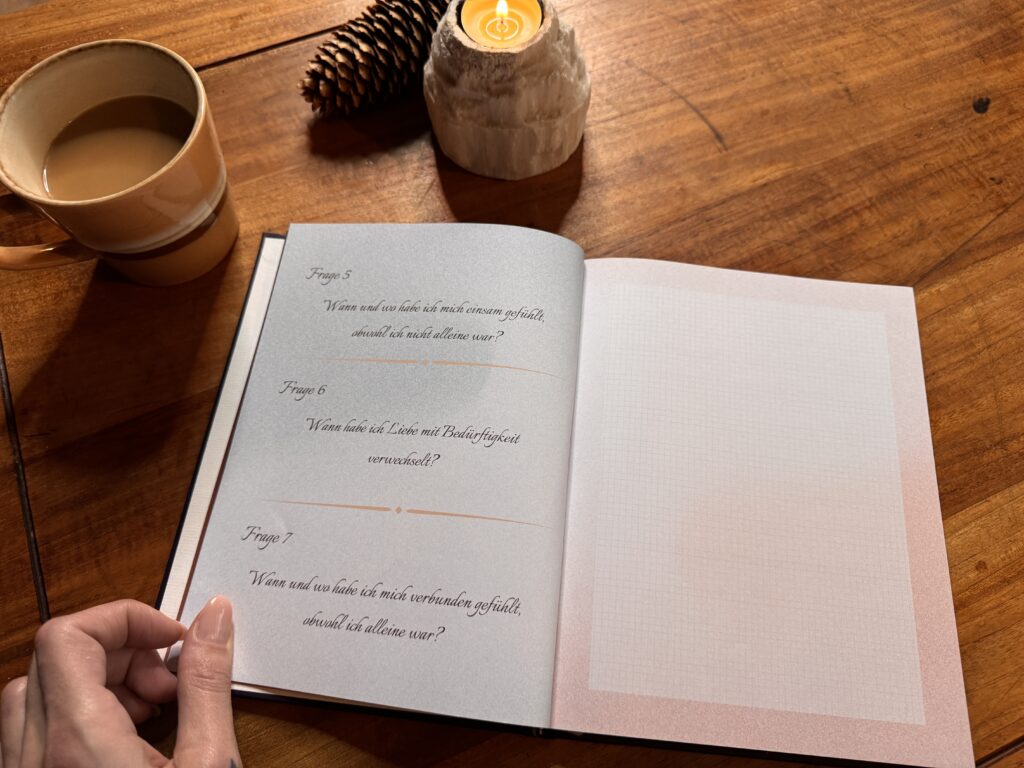 Frage 5
Wann und wo habe ich mich einsam gefühlt,
obwohl ich nicht alleine war?
Frage 6
Wann habe ich Liebe mit Bedürftigkeit
verwechselt?
Frage 7
Wann und wo habe ich mich verbunden gefühlt,
obwohl ich alleine war?